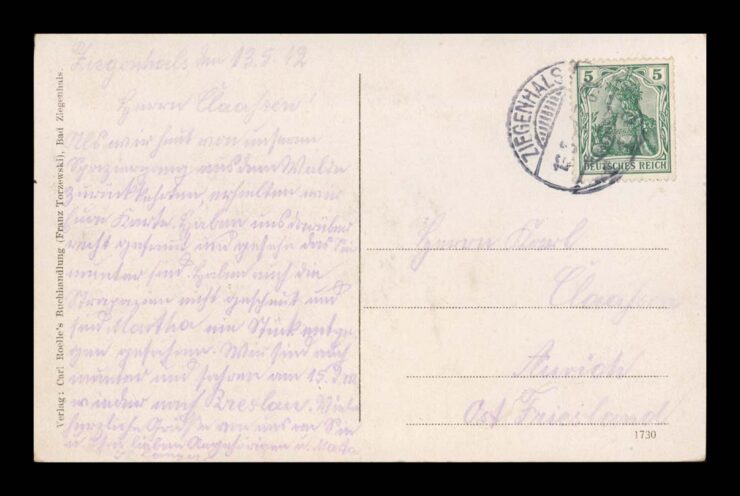 Ziegenhals den 13.5.12
Herrn Claaßen!
Als wir heut von unserem
Spaziergang aus dem Walde
zurückkehrten, erhielten wir
Karte. Haben uns darüber
recht gefreut und das Sie
munter sind. Haben auch die
Strapazen nicht gescheut und
sind Martha ein Stück entge-
gen gefahren. Wir sind auch
munter und fahren am 15. d. M.
wieder nach Breslau. Viele
herzliche Grüße von uns an Sie
u. lieben Angehörigen u. Martha
Verlag: Carl Roelle's Buchhandlung (Franz Torzewski), Bad Ziegenhals.
ZIEGENHALS
5 5
DEUTSCHES REICH
Herrn Karl
Claaßen
Aurich
Ost Friesland
1730